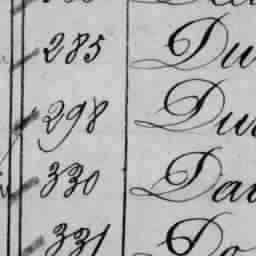 285 Du
298 Du
330 Da
331 Do